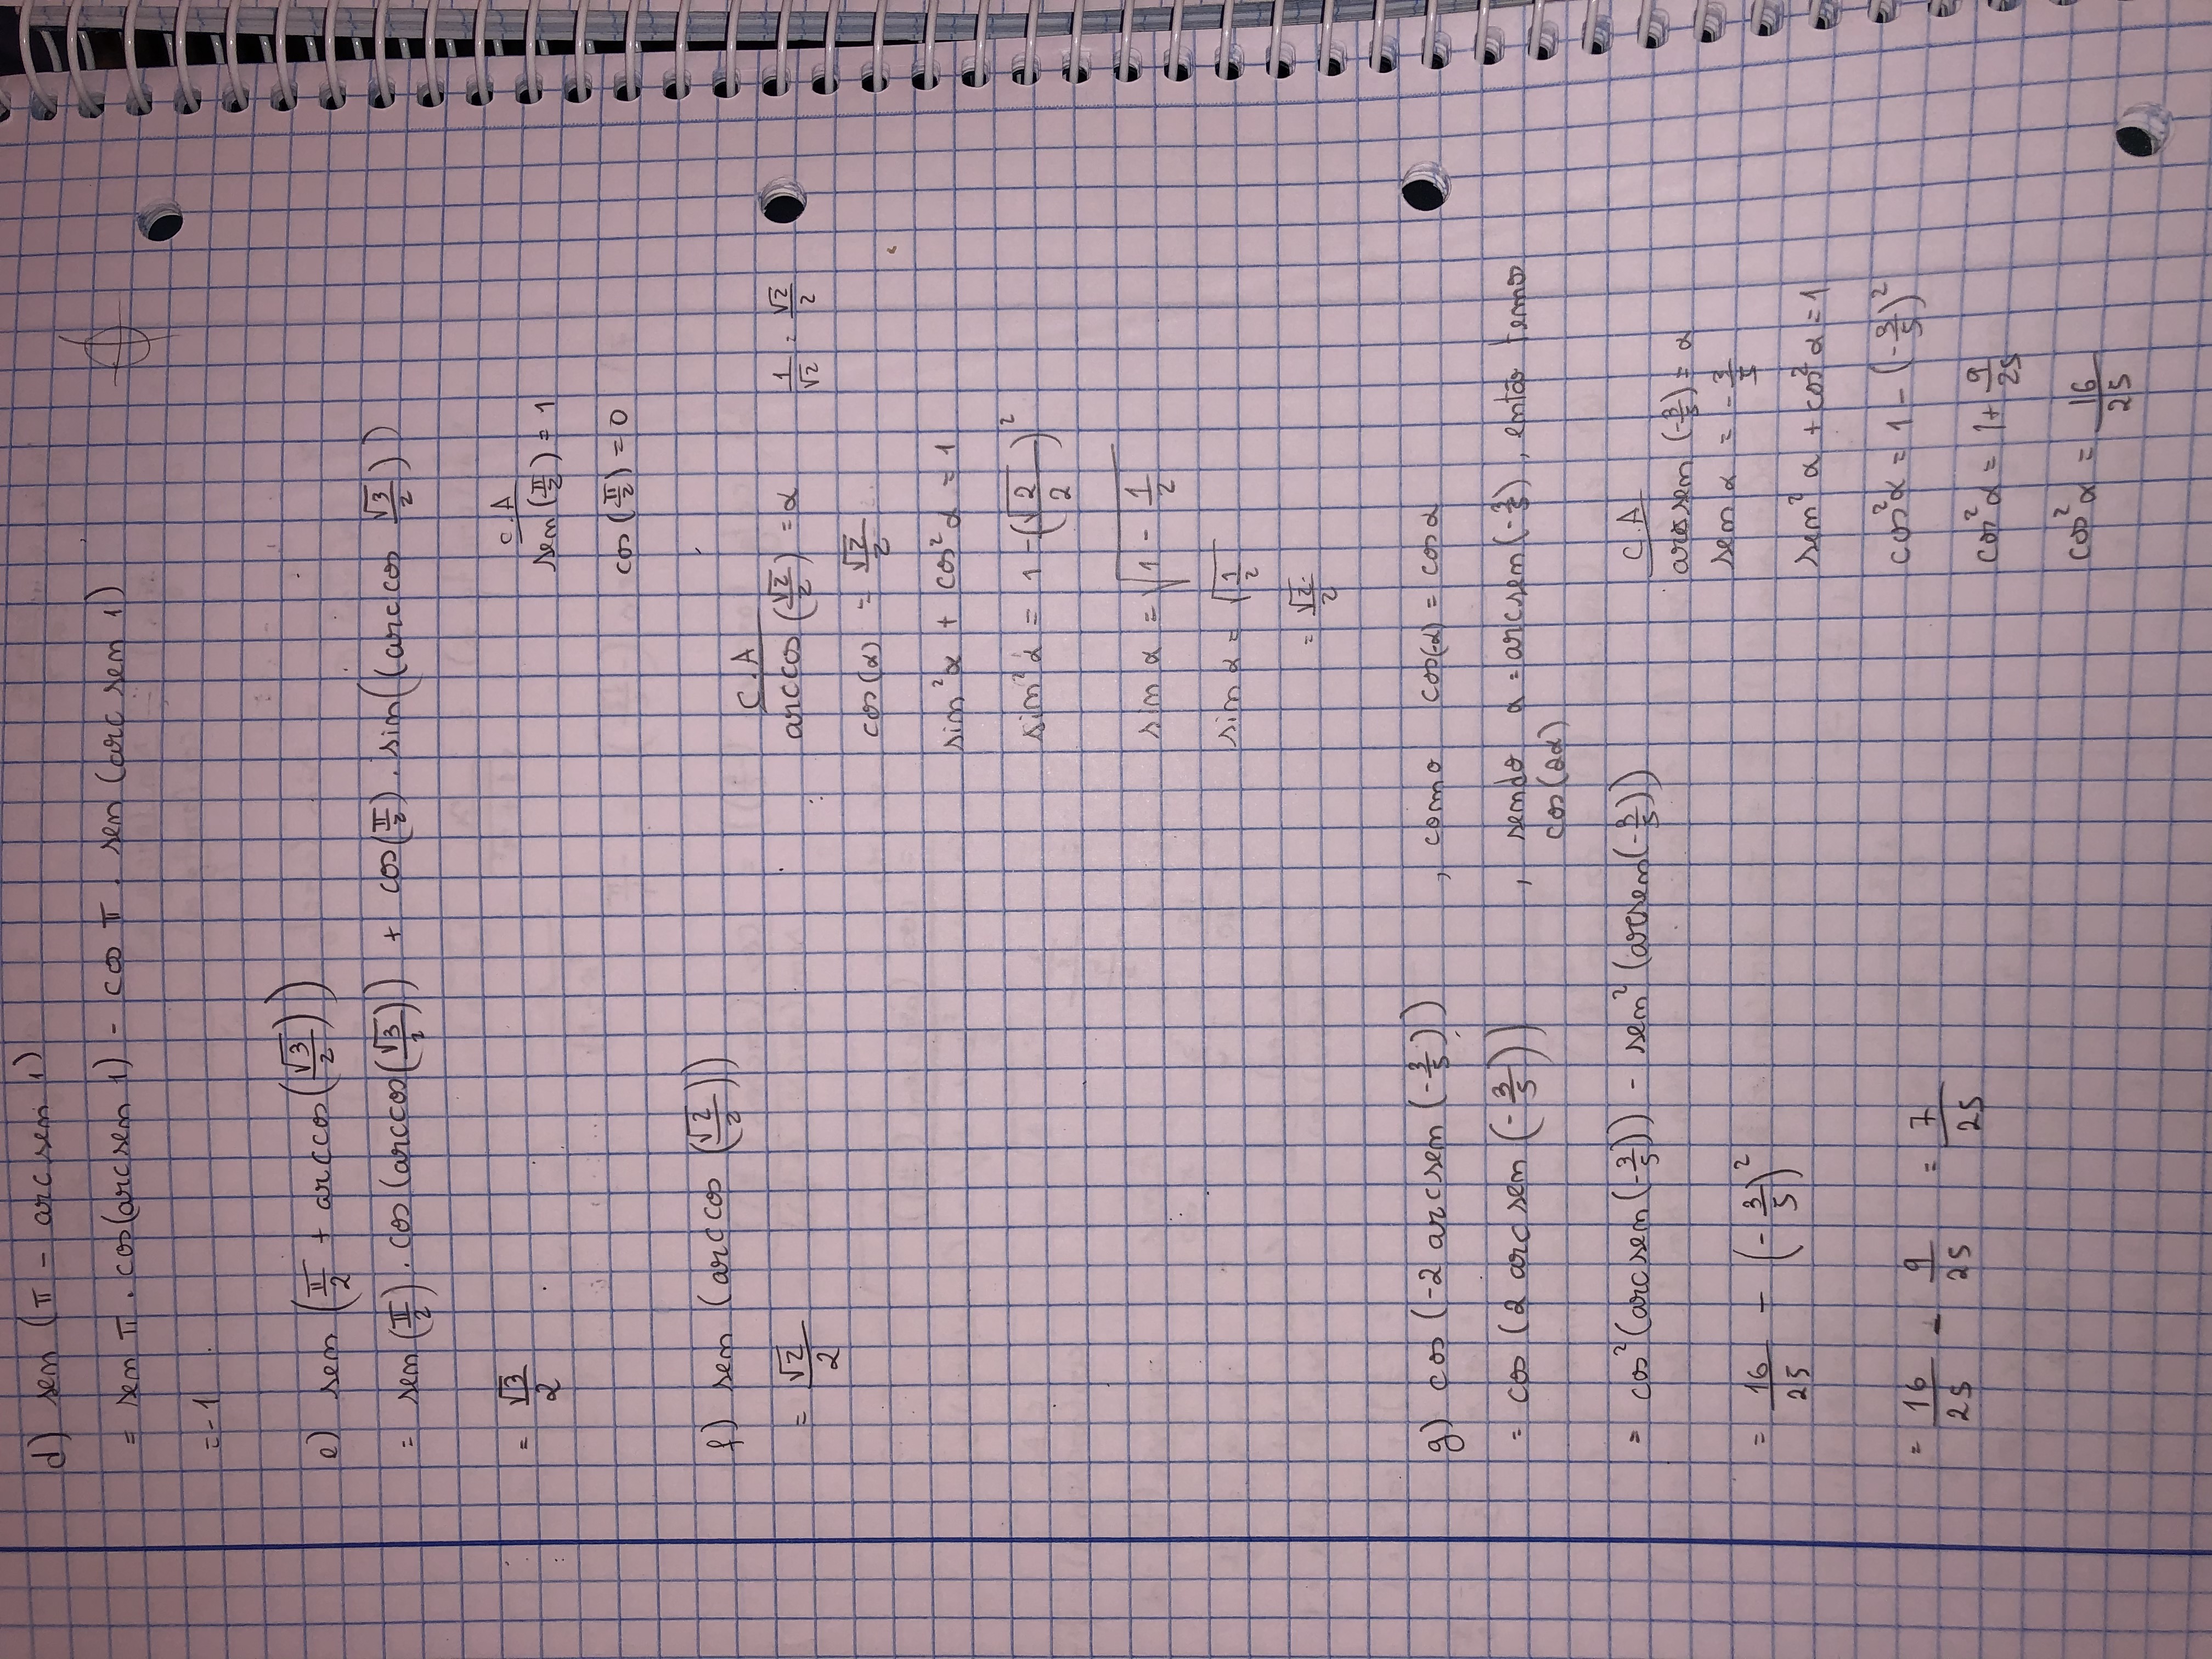 d) sen (π - arc sen 1)
= sen π . cos(arc sen 1) - cos π . sen (arc sen 1)
= -1
e) sen (π/2 + arccos(√3/2))
= sen (π/2) . cos (arccos(√3/2)) + cos(π/2) . sin((arccos √3/2))
= √3/2
C.A
sen (π/2) = 1
cos (π/2) = 0
f) sen (arccos (√2/2))
= √2/2
C.A
arccos (√2/2) = α    1/√2 = √2/2
cos(α) = √2/2
sin²α + cos²α = 1
sin²α = 1 - (√2/2)²
sin α = √(1 - 1/2)
sin α = √(1/2)
= √2/2
g) cos (-2 arcsen (-3/5)) , como cos(-α) = cos α
= cos (2 arcsen (-3/5)) , sendo α = arcsen(-3/5), então temos
cos(2α)
= cos²(arcsen(-3/5)) - sen²(arcsen(-3/5))
= 16/25 - (-3/5)²
= 16/25 - 9/25 = 7/25
C.A
arcsen (-3/5) = α
sen α = -3/5
sen² α + cos² α = 1
cos²α = 1 - (-3/5)²
cos²α = 1 + 9/25
cos²α = 16/25